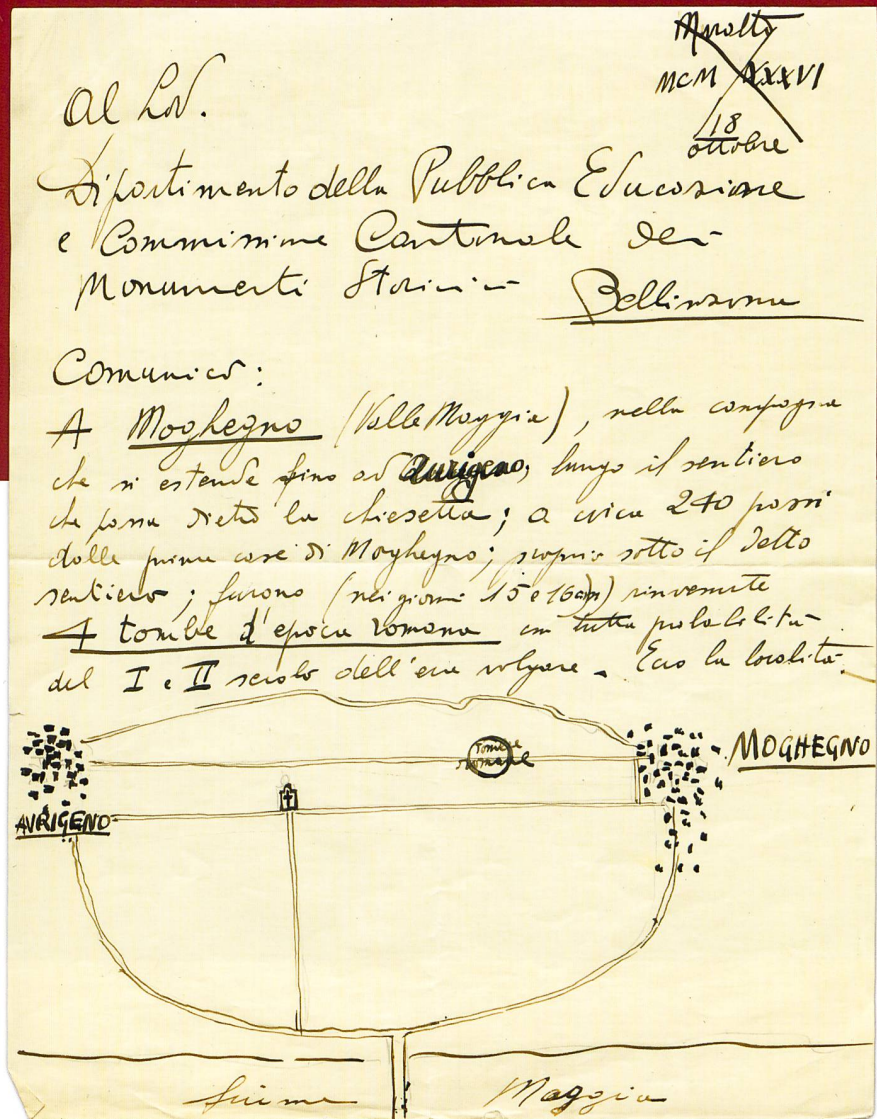 Muralto
MCMXXXVI
18
ottobre
Al Lod.
Dipartimento della Pubblica Educazione
e Commissione Cantonale dei
Monumenti Storici
Bellinzona
Comunico:
A Moghegno (Valle Maggia), nella campagna
che si estende fino ad Aurigeno; lungo il sentiero
che passa dietro la chiesetta; a circa 240 passi
dalle prime case di Moghegno; proprio sotto il detto
sentiero; furono (nei giorni 15 e 16) rinvenute
4 tombe d'epoca romana con tutta probabilità
del I e II secolo dell'era volgare. Ecco la località.
Tombe
romane
MOGHEGNO
AURIGENO
fiume Maggia